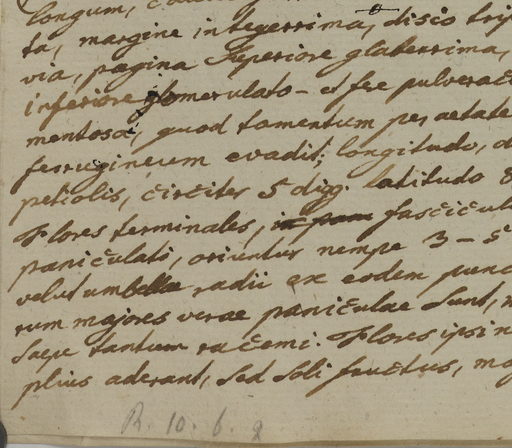 longum,
ta, margine integerrima, disco trip
via, pagina superiore glaberrima,
inferiore glomerulato - et fee pulverace
mentosa, quod tomentum per aetate
ferrugineum evadit; longitudo, d
petiolis, circiter 5 dig. latitudo
Flores terminales, fascicul
paniculati, oriuntur nempe 3 - 5
velut umbellae radii ex eodem punc
rum majores verae paniculae sunt,
saepe tantum racemi. Flores ipsi n
plius aderant, sed soli fructus, ma
R. 10. 6.